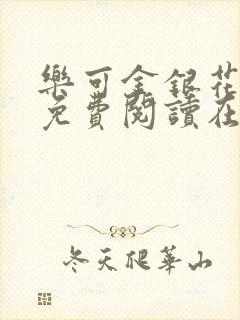 樂可金銀花
免費閱讀在
冬天爬華山